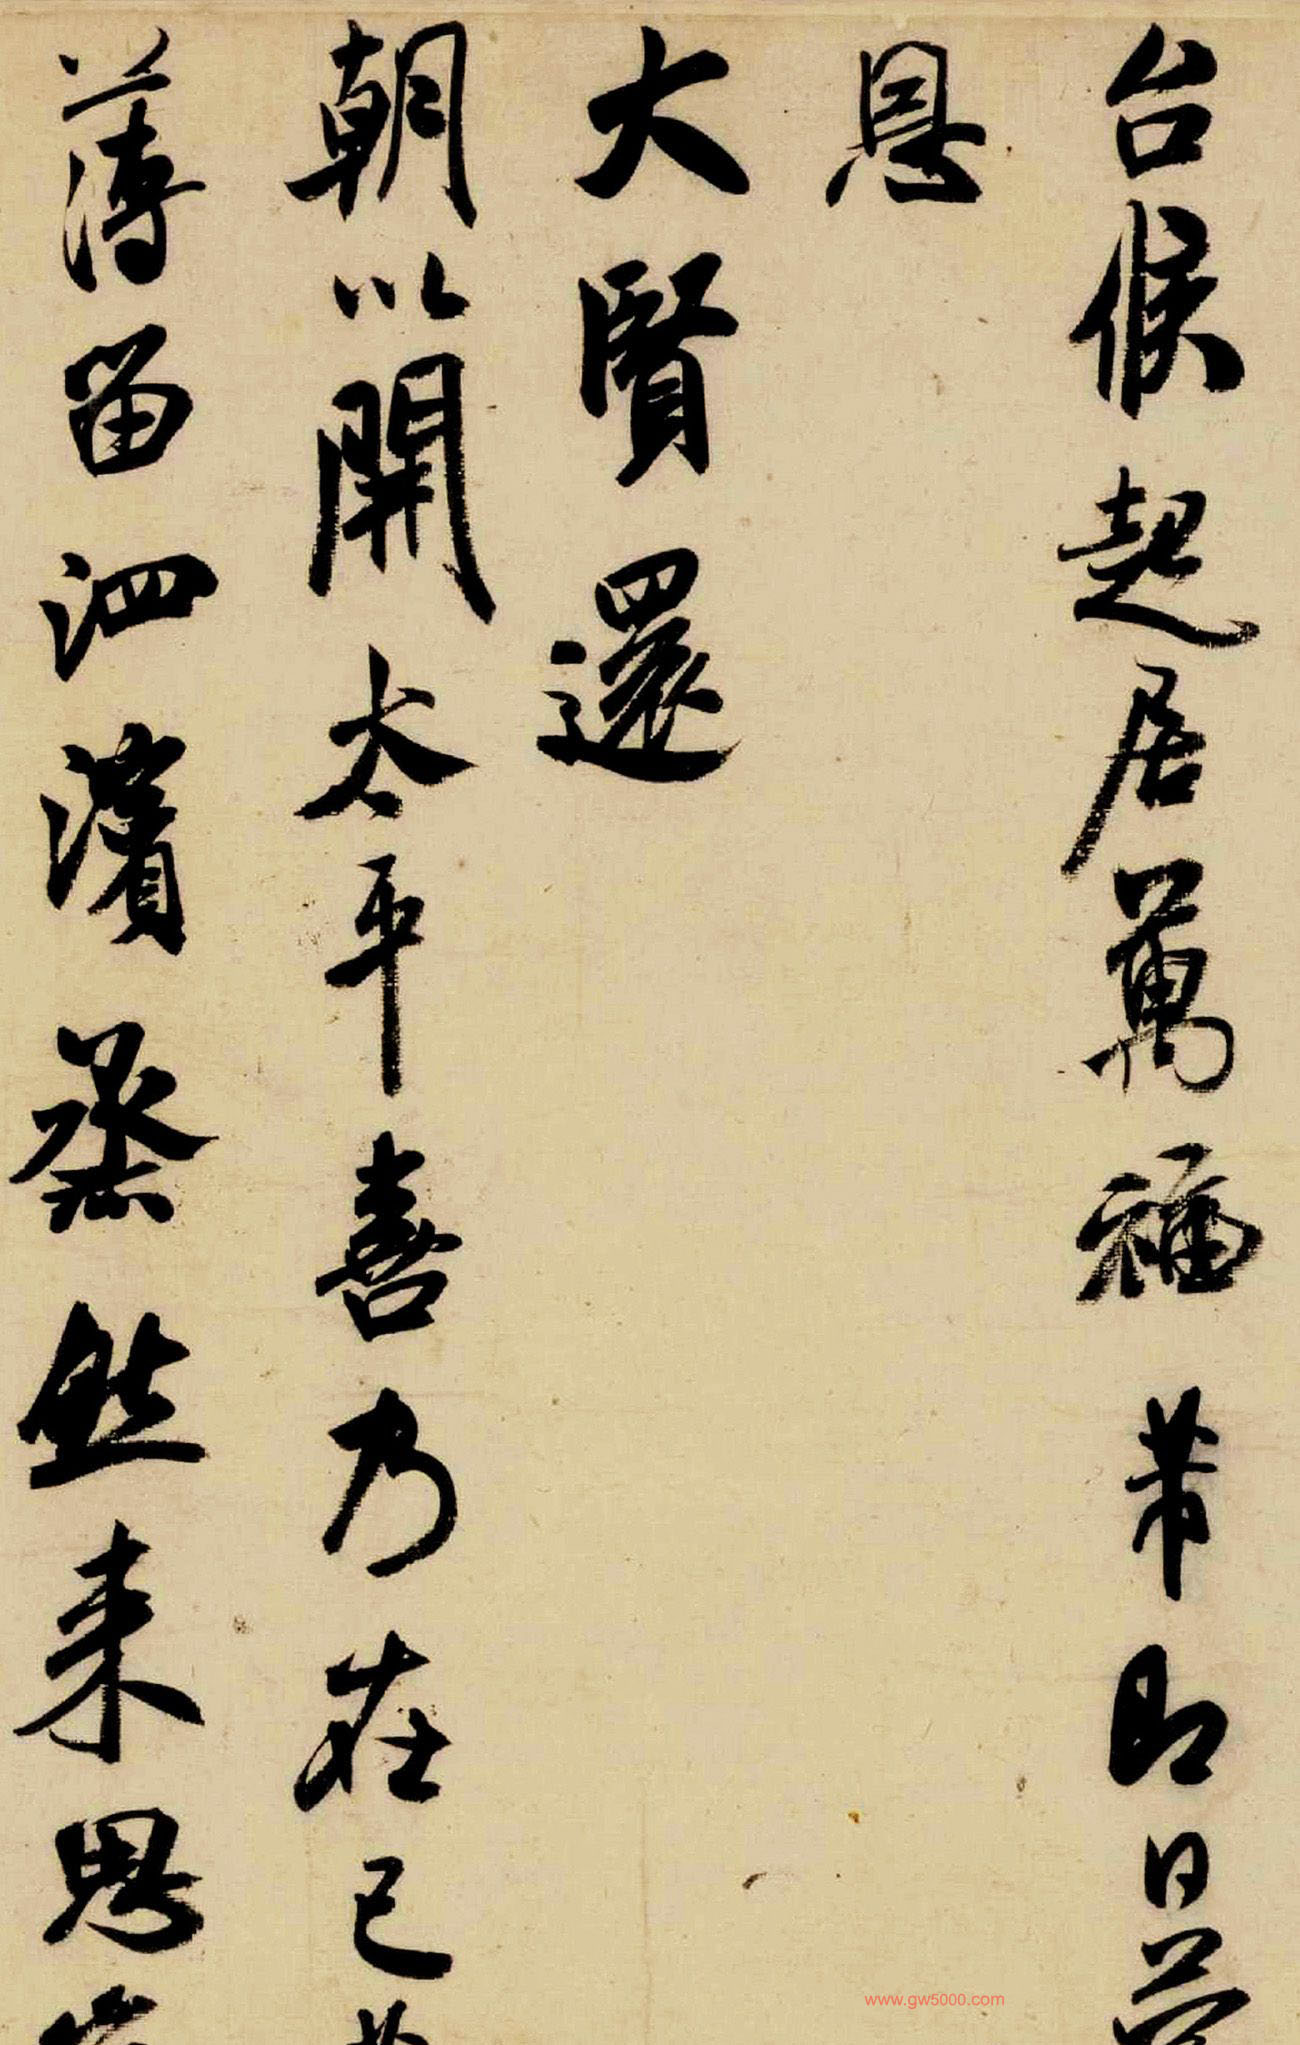 台候起居萬福芾即日蒙
恩
大賢還
朝以開太平喜乃在己
薄留泗濱烝然来思
www.gw5000.com